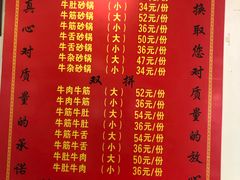 牛肚砂锅（小）34元/份
牛筋砂锅（大）52元/份
牛筋砂锅（小）36元/份
牛舌砂锅（大）50元/份
牛舌砂锅（小）36元/份
牛杂砂锅（大）47元/份
牛杂砂锅（小）34元/份
双拼
牛肉牛筋（大）52元/份
牛肉牛筋（小）36元/份
牛筋牛肚（大）54元/份
牛筋牛肚（小）36元/份
牛筋牛舌（大）54元/份
牛筋牛舌（小）36元/份
牛肚牛肉（大）50元/份
牛肚牛肉（小）36元/份
真心对质量的承诺
换取您对质量的放心